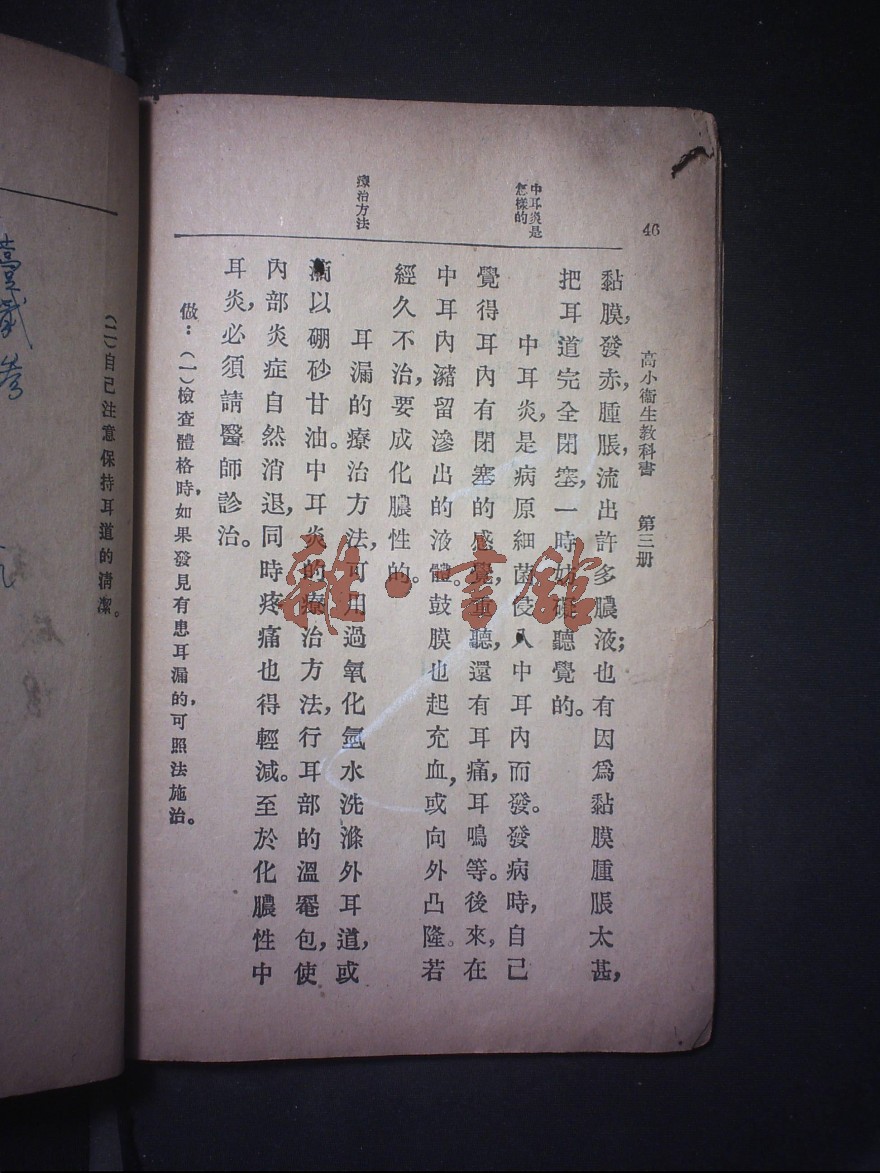 46
高小衞生教科書　第三册
中耳炎是
怎樣的
療治方法
黏膜，發赤，腫脹，流出許多膿液；也有因爲黏膜腫脹太甚，
把耳道完全閉塞，一時妨礙聽覺的。
中耳炎，是病原細菌侵入中耳內而發。發病時，自己
覺得耳內有閉塞的感覺，重聽，還有耳痛，耳鳴等。後來，在
中耳內瀦留滲出的液體。鼓膜也起充血，或向外凸隆。若
經久不治，要成化膿性的。
耳漏的療治方法，可用過氧化氫水洗滌外耳道，或
滴以硼砂甘油。中耳炎的療治方法，行耳部的溫罨包，使
內部炎症自然消退，同時疼痛也得輕減。至於化膿性中
耳炎，必須請醫師診治。
做：（一）檢查體格時，如果發見有患耳漏的，可照法施治。
（二）自己注意保持耳道的清潔。
雜·書館